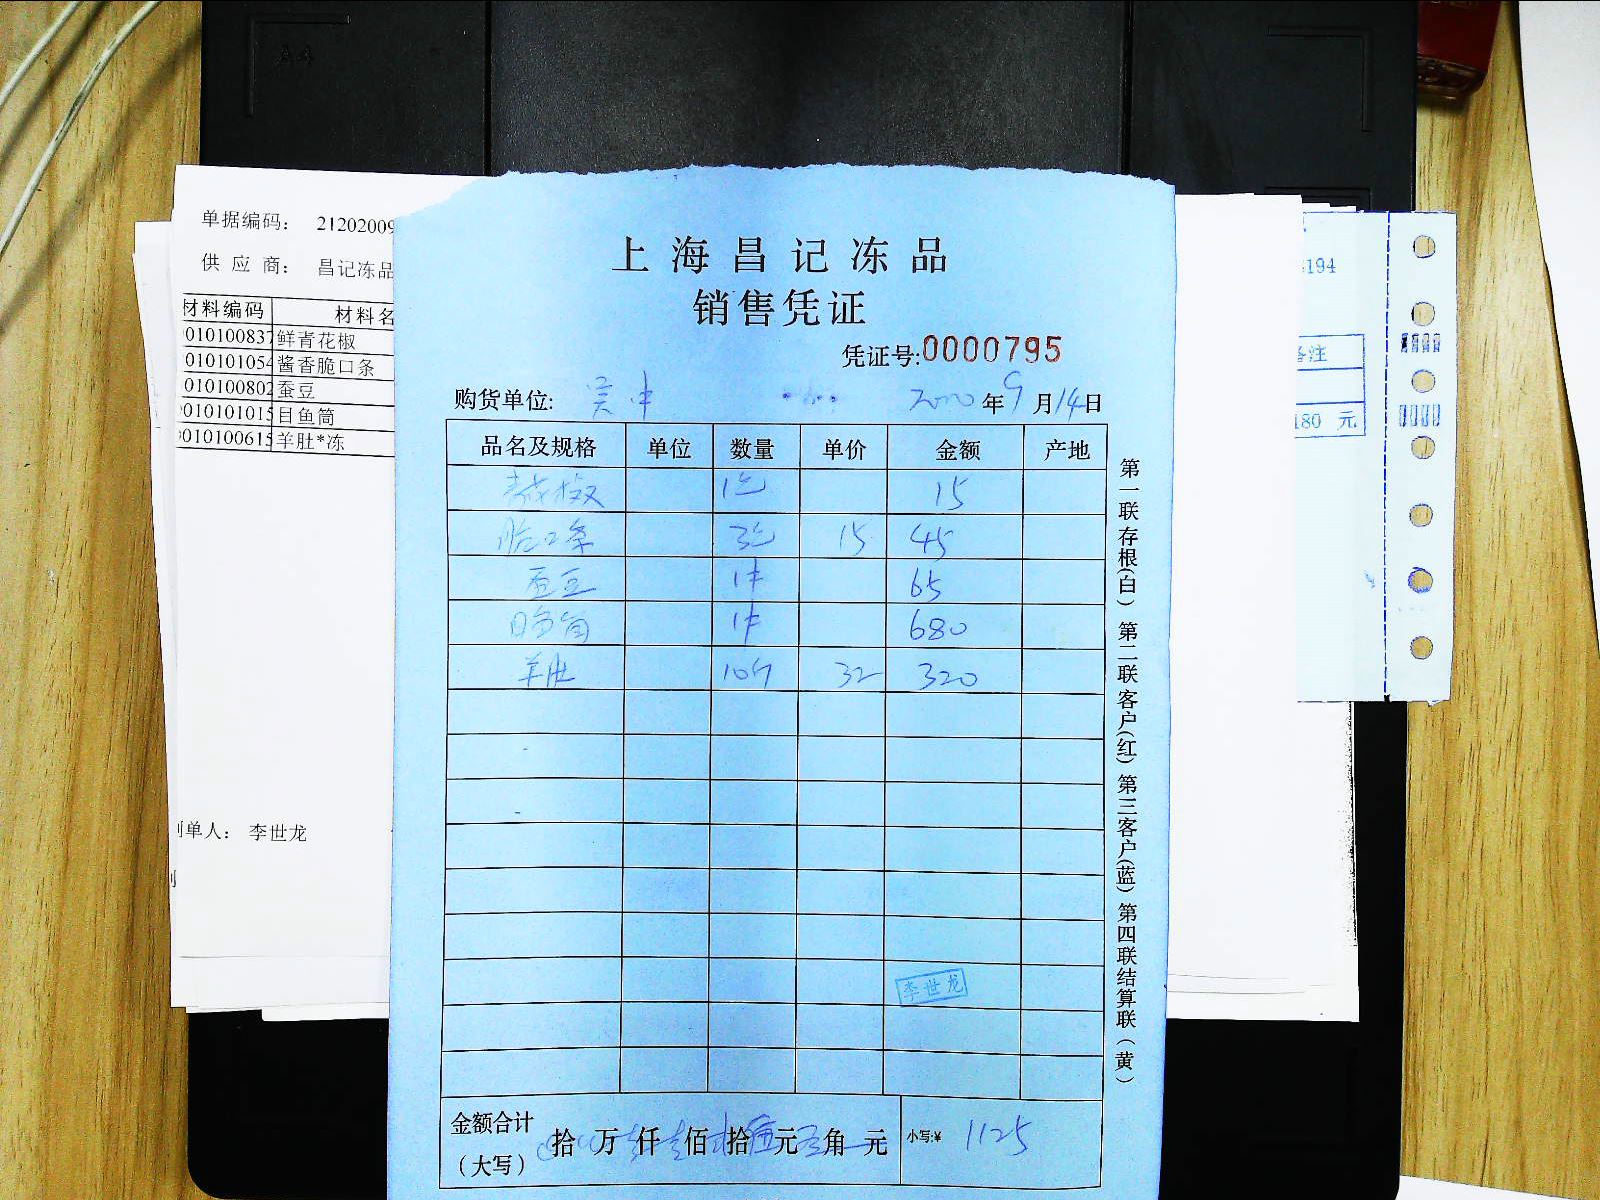 A4
单据编码： 21202009
供 应 商： 昌记冻品
材料编码 材料名
010100837 鲜青花椒
010101054 酱香脆口条
010100802 蚕豆
010101015 目鱼筒
010100615 羊肚*冻
制单人： 李世龙
上海昌记冻品
销售凭证
凭证号:0000795
购货单位: 吴中 2020年9月14日
品名及规格 单位 数量 单价 金额 产地
1包 15
脆口条 3包 15 45
蚕豆 1件 65
目鱼筒 1件 680
羊肚 10斤 32 320
李世龙
金额合计（大写） 拾 万 仟 佰 拾 元 角 元 小写:¥ 1125
第一联存根(白) 第二联客户(红) 第三客户(蓝) 第四联结算联(黄)
4194
备注
180 元